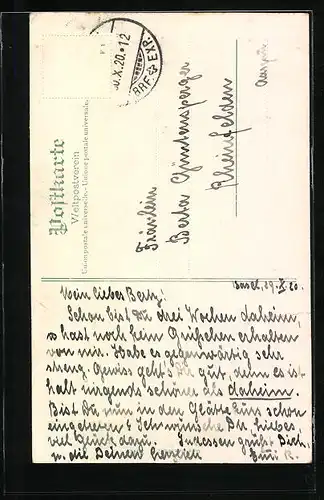 Postkarte
Weltpostverein
Unionpostale universelle. Unione postale universale.
X.20.12
EXP.
Fräulein
Berta Güntensperger
Rheinfelden
Aargau
Basel, 29. X. 20.
Mein liebes Berty!
Schon bist Du drei Wochen daheim,
u. hast noch kein Grüßchen erhalten
von mir. Habe es gegenwärtig sehr
streng. Gewiss geht's Dir gut, denn es ist
halt nirgends schöner als daheim.
Bist Du nun in den Glättekurs schon
eingetreten? Ich wünsche Dir, liebes,
viel Glück dazu. Inzessen grüßt Dich
u. die Deinen herzlich